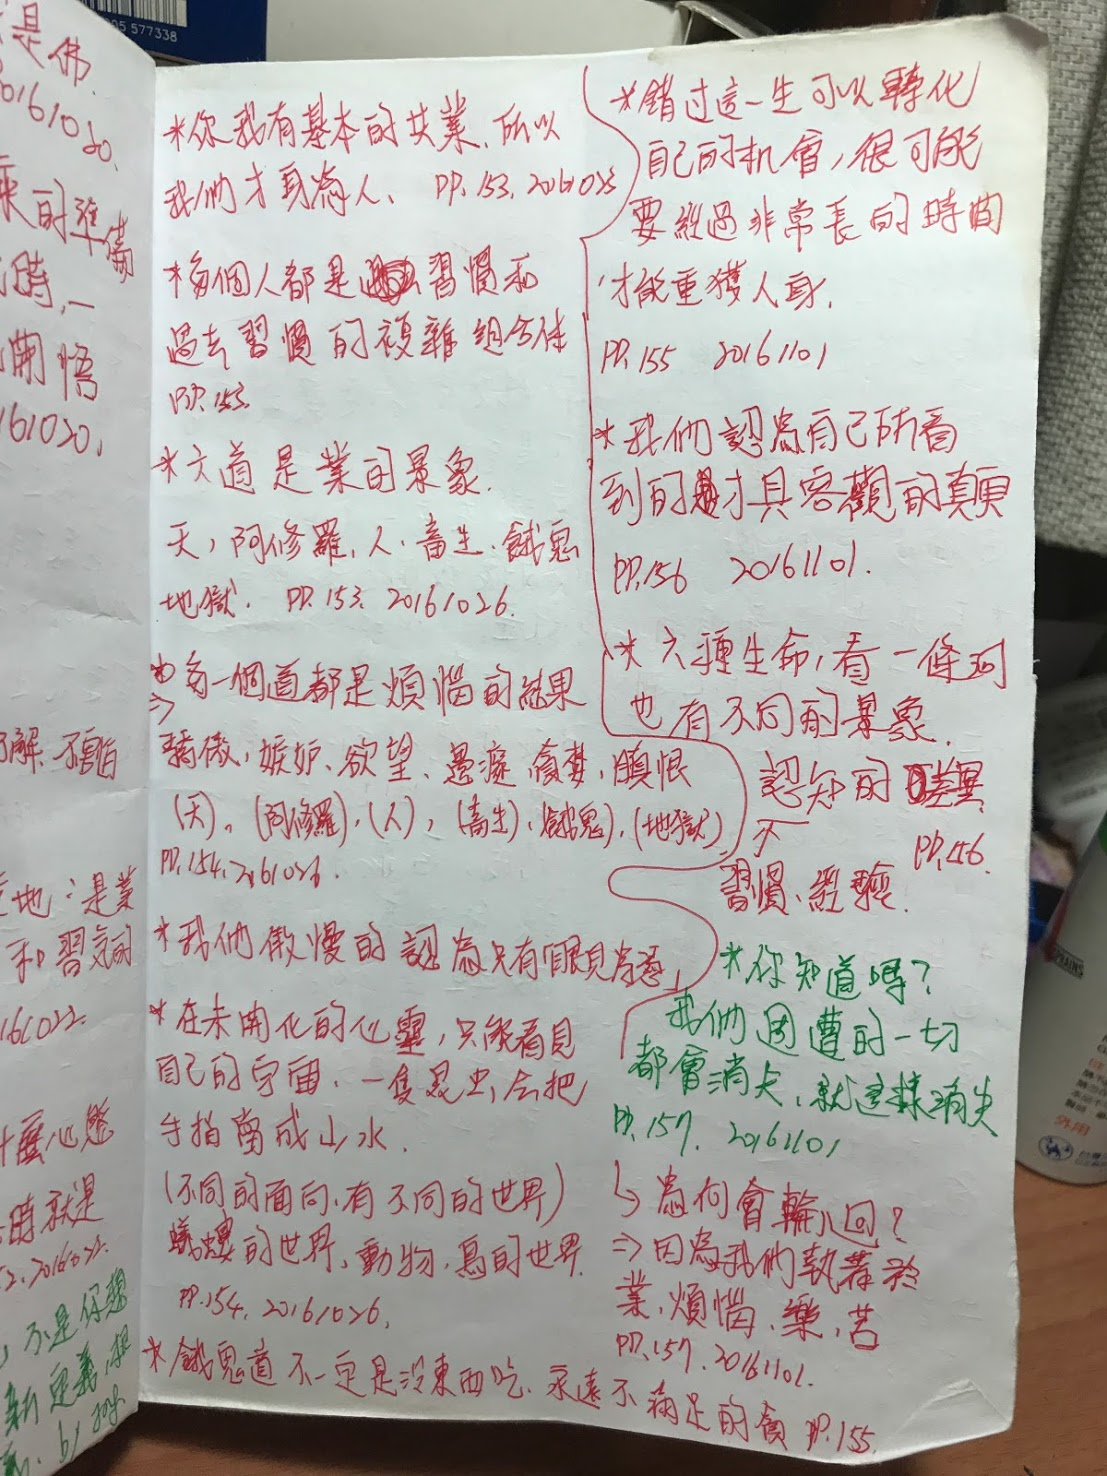 05 577338
是佛.
20161020.
來的準備
時,一
開悟
161020,
解 不自
地:是業
和習気的
161022.
什麼心態
時就是
2, 20161022.
不是你想
新定義,
by
*你我有基本的共業、所以
我們才身為人、 PP.153. 20161025
*每個人都是習慣和
過去習慣的複雜組合体
PP.153.
*六道是業的景象.
天,阿修羅,人、畜生、餓鬼
地獄. PP.153. 20161026.
*每一個道都是煩惱的結果
⇒
驕傲,嫉妒、欲望、愚癡、貪婪,瞋恨
(天)。(阿修羅),(人),(畜生),(餓鬼),(地獄)
PP.154.20161026.
*我們傲慢的認為只有「眼見為憑」
*在未開化的心靈,只能看見
自己的宇宙.一隻昆虫,会把
手指當成山水.
(不同的面向,有不同的世界)
螞蟻的世界,動物,鳥的世界.
PP.154. 20161026.
*餓鬼道不一定是沒東西吃.永遠不滿足的貪 PP.155.
*錯过這一生可以轉化
自己的机會,很可能
要經過非常長的時間
才能重獲人身.
PP.155 20161101
*我們認為自己所看
到的才具客觀的真
PP.156 20161101.
*六種生命,看一條河
也有不同的景象.
認知的差異
PP.156.
習慣、經驗.
*你知道嗎?
我們周遭的一切
都會消失、就這樣消失
PP.157. 20161101
為何會輪回?
⇒因為我們執著於
業,煩惱、樂,苦
PP.157.20161101.
外用